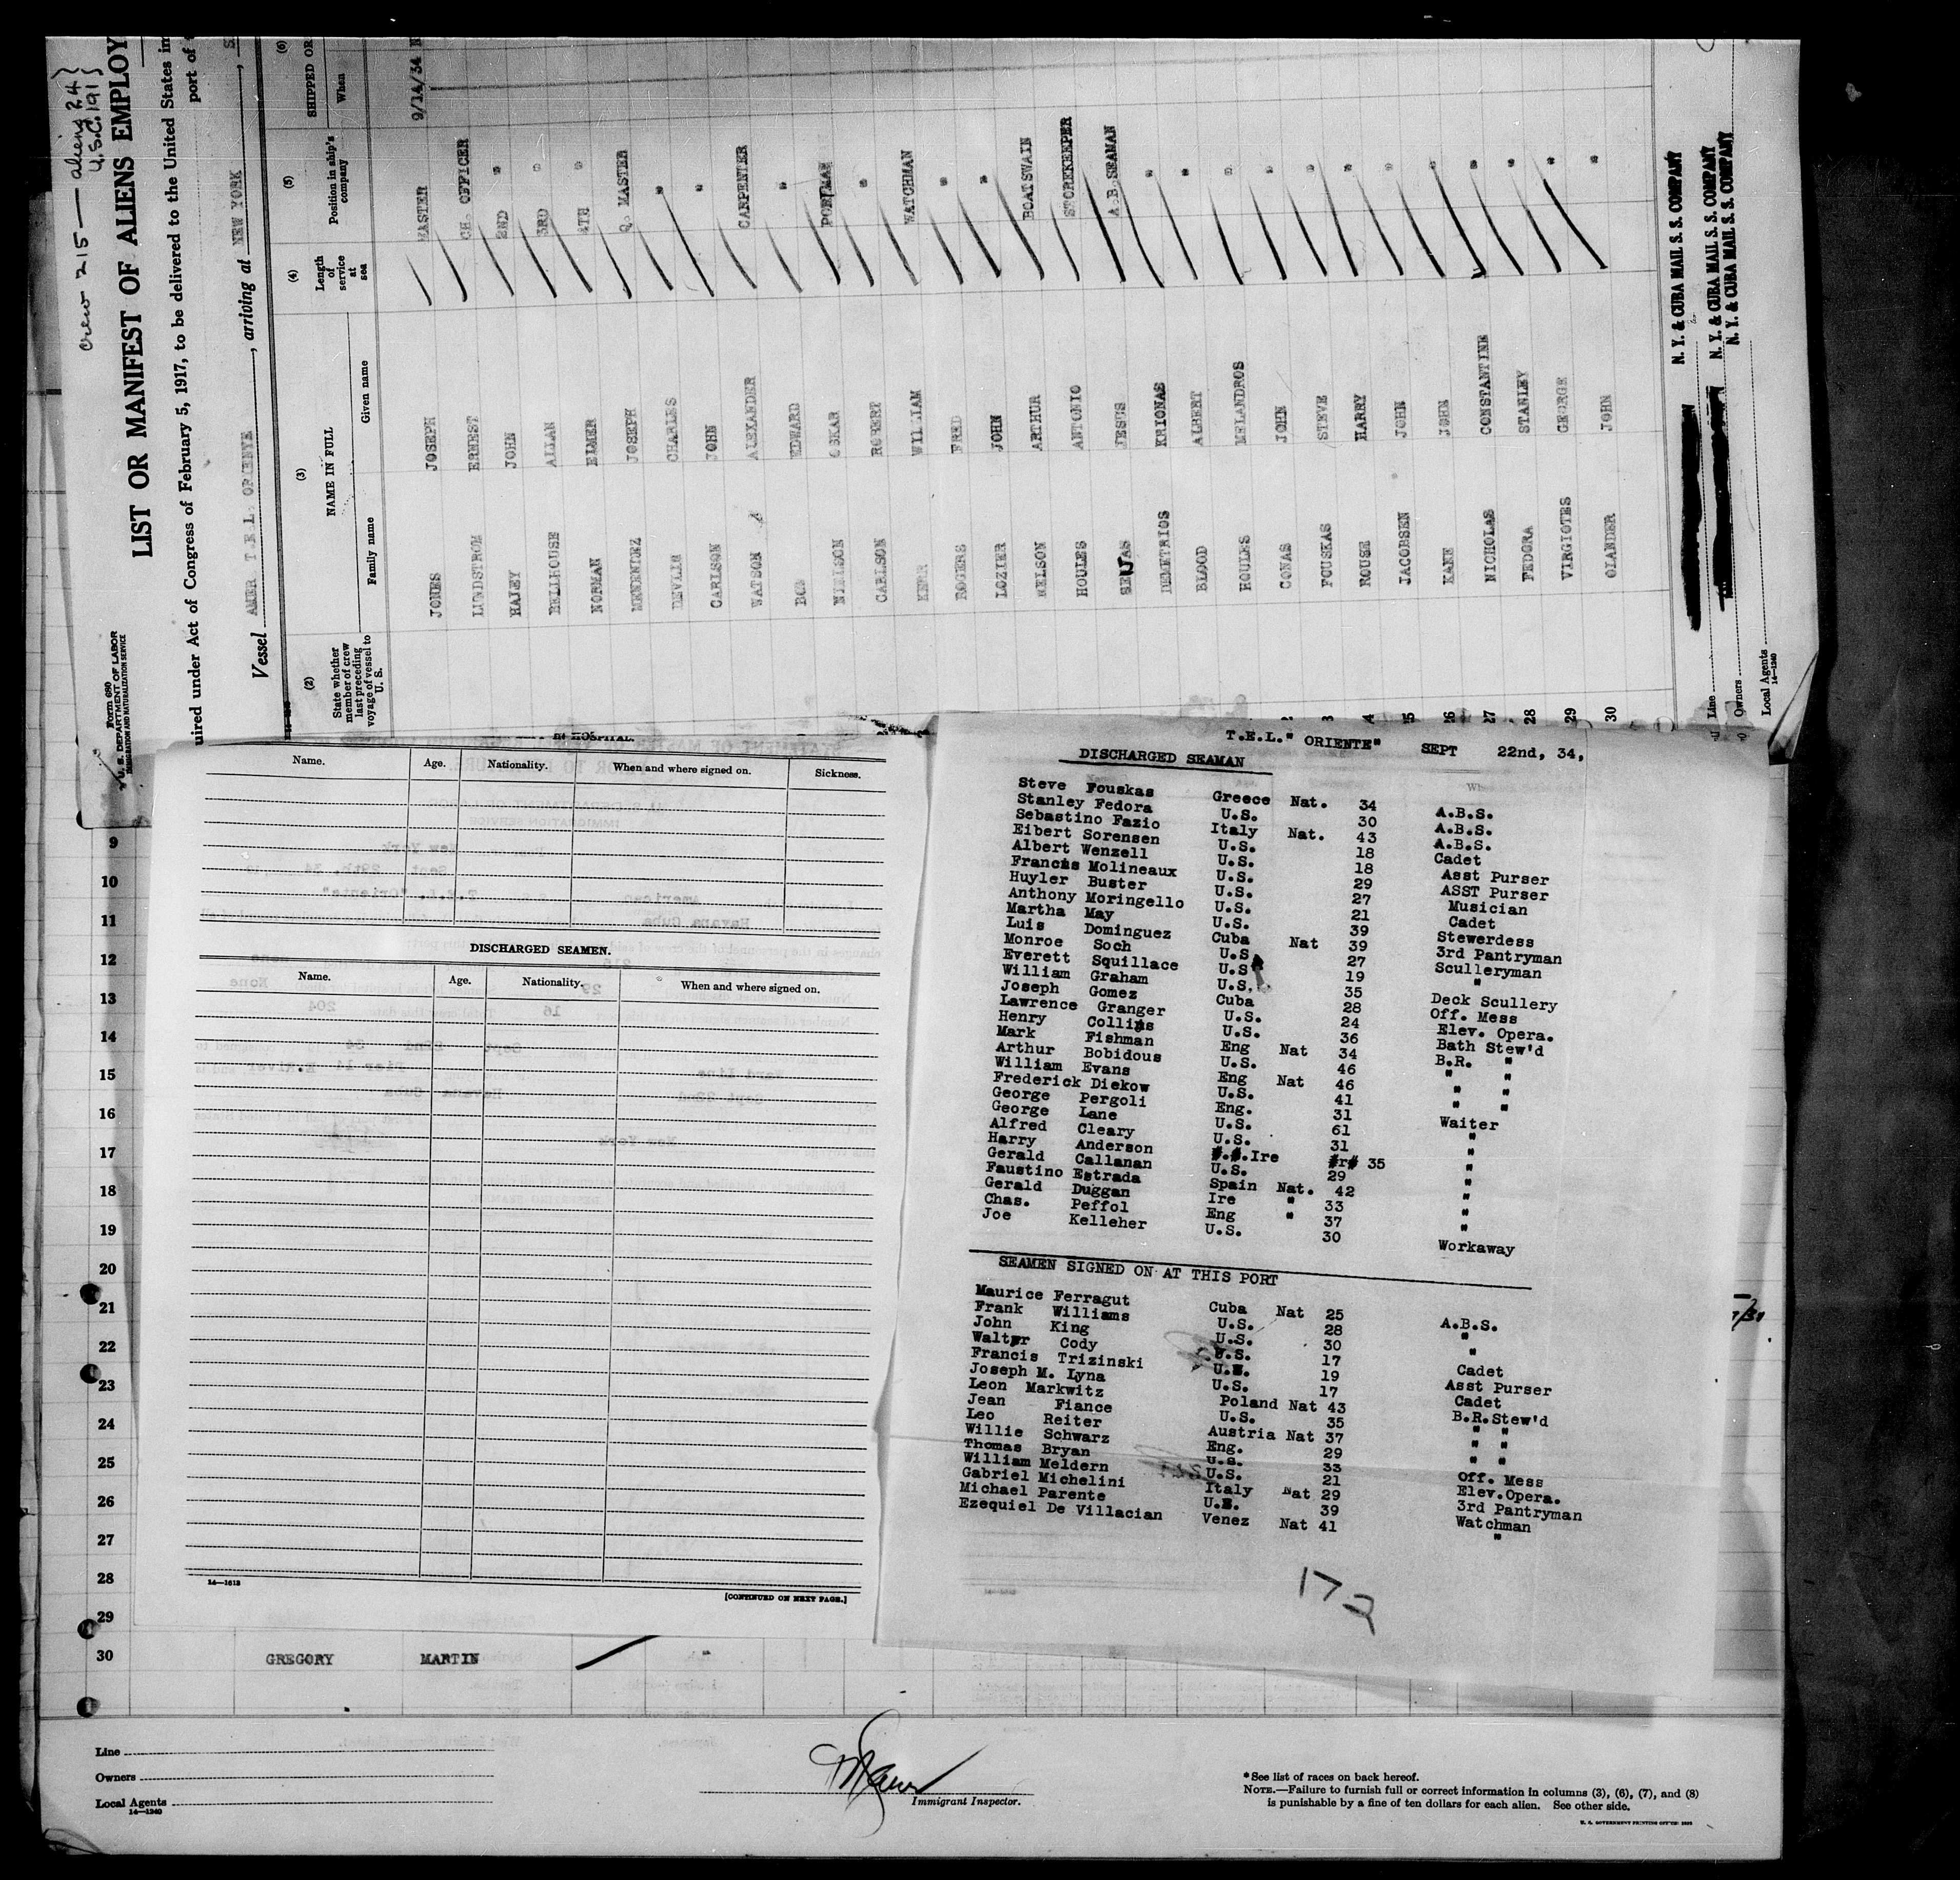 crew 215 — aliens 24 }
U.S.C. 191 }
Form 680
U. S. DEPARTMENT OF LABOR
IMMIGRATION AND NATURALIZATION SERVICE
LIST OR MANIFEST OF ALIENS EMPLOY
uired under Act of Congress of February 5, 1917, to be delivered to the United States im
port of
Vessel AMER T.E.L. ORIENTE, arriving at NEW YORK,
(2) (3) (4) (5) (6)
State whether member of crew last preceding voyage of vessel to U. S.
NAME IN FULL
Family name Given name
Length of service at sea
Position in ship's company
SHIPPED OR
When
JONES JOSEPH MASTER 9/14/34
LINDSTROM ERNEST CH. OFFICER
HAJEY JOHN 2ND "
BELLHOUSE ALLAN 3RD "
NORMAN ELMER 4TH "
MENENDEZ JOSEPH Q. MASTER
DEVLIN CHARLES "
CARLSON JOHN "
WATSON ALEXANDER CARPENTER
EDWARD "
NIELSON OSKAR
CARLSON ROBERT "
KERR WILLIAM WATCHMAN
ROGERS FRED "
LOZIER JOHN "
NELSON ARTHUR BOATSWAIN
HOULES ANTONIO STOREKEEPER
JESUS A.B. SEAMAN
DEMETRIOS KRIONAS "
BLOOD ALBERT "
HOULES MELANDROS "
CONAS JOHN "
FOUSKAS STEVE "
ROUSE HARRY "
JACOBSEN JOHN "
KANE JOHN "
27 NICHOLAS CONSTANTINE "
28 FEDORA STANLEY "
29 VIRGIOTES GEORGE "
30 OLANDER JOHN "
Line N. Y. & CUBA MAIL S. S. COMPANY
Owners N. Y. & CUBA MAIL S. S. COMPANY
Local Agents N. Y. & CUBA MAIL S. S. COMPANY
14—1240
IN HOSPITAL.
Name. Age. Nationality. When and where signed on. Sickness.
DISCHARGED SEAMEN.
Name. Age. Nationality. When and where signed on.
14—1613
[CONTINUED ON NEXT PAGE.]
T.E.L." ORIENTE" SEPT 22nd, 34,
DISCHARGED SEAMAN
Steve Fouskas Greece Nat. 34 A.B.S.
Stanley Fedora U.S. 30 A.B.S.
Sebastino Fazio Italy Nat. 43 A.B.S.
Eibert Sorensen U.S. 18 Cadet
Albert Wenzell U.S. 18 Asst Purser
Francis Molineaux U.S. 29 ASST Purser
Huyler Buster U.S. 27 Musician
Anthony Moringello U.S. 21 Cadet
Martha May U.S. 39 Stewerdess
Luis Dominguez Cuba Nat 39 3rd Pantryman
Monroe Soch U.S. 27 Sculleryman
Everett Squillace U.S. 19 "
William Graham U.S. 35 Deck Scullery
Joseph Gomez Cuba 28 Off. Mess
Lawrence Granger U.S. 24 Elev. Opera.
Henry Collins U.S. 36 Bath Stew'd
Mark Fishman Eng Nat 34 B.R. "
Arthur Bobidous U.S. 46 " "
William Evans Eng Nat 46 " "
Frederick Diekow U.S. 41 " "
George Pergoli Eng. 31 Waiter
George Lane U.S. 61 "
Alfred Cleary U.S. 31 "
Harry Anderson Ire 35 "
Gerald Callanan U.S. 29 "
Faustino Estrada Spain Nat. 42 "
Gerald Duggan Ire " 33 "
Chas. Peffol Eng " 37 "
Joe Kelleher U.S. 30 Workaway
SEAMEN SIGNED ON AT THIS PORT
Maurice Ferragut Cuba Nat 25 A.B.S.
Frank Williams U.S. 28 "
John King U.S. 30 "
Walter Cody U.S. 17 Cadet
Francis Trizinski U.S. 19 Asst Purser
Joseph M. Lyna U.S. 17 Cadet
Leon Markwitz Poland Nat 43 B.R.Stew'd
Jean Fiance U.S. 35 " "
Leo Reiter Austria Nat 37 " "
Willie Schwarz Eng. 29 " "
Thomas Bryan U.S. 33 Off. Mess
William Meldern U.S. 21 Elev.Opera.
Gabriel Michelini Italy Nat 29 3rd Pantryman
Michael Parente U.S. 39 Watchman
Ezequiel De Villacian Venez Nat 41 "
172
9
10
11
12
13
14
15
16
17
18
19
20
21
22
23
24
25
26
27
28
29
30 GREGORY MARTIN
Line
Owners
Local Agents
14—1240
Immigrant Inspector.
*See list of races on back hereof.
NOTE.—Failure to furnish full or correct information in columns (3), (6), (7), and (8)
is punishable by a fine of ten dollars for each alien. See other side.
U. S. GOVERNMENT PRINTING OFFICE: 1933